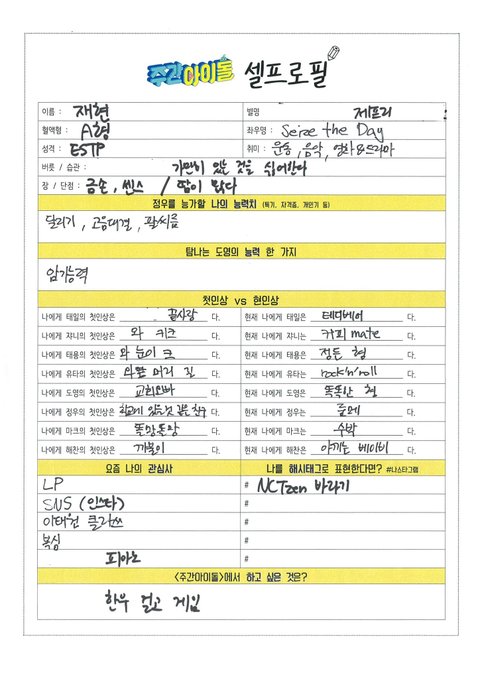 주간아이돌 셀프로필
이름 : 재현 별명 제프리
혈액형 : A형 좌우명 : Seize the Day
성격 : ESTP 취미 : 운동, 음악, 영화&드라마
버릇 / 습관 : 가만히 있는 것을 싫어한다
장 / 단점 : 금손, 센스 / 땀이 많다
정우를 능가할 나의 능력치 (특기, 자격증, 개인기 등)
달리기, 고음대결, 팔씨름
탐나는 도영의 능력 한 가지
암기능력
첫인상 vs 현인상
나에게 태일의 첫인상은 끝사랑 다. 현재 나에게 태일은 테디베어 다.
나에게 쟈니의 첫인상은 와 키크 다. 현재 나에게 쟈니는 커피 mate 다.
나에게 태용의 첫인상은 와 눈이 크 다. 현재 나에게 태용은 정든 형 다.
나에게 유타의 첫인상은 와 앞 머리 길 다. 현재 나에게 유타는 rock'n'roll 다.
나에게 도영의 첫인상은 교회오빠 다. 현재 나에게 도영은 똑똑한 형 다.
나에게 정우의 첫인상은 학교에 있을것 같은 친구 다. 현재 나에게 정우는 다.
나에게 마크의 첫인상은 똘망똘망 다. 현재 나에게 마크는 수박 다.
나에게 해찬의 첫인상은 까불이 다. 현재 나에게 해찬은 아끼는 베이비 다.
요즘 나의 관심사 나를 해시태그로 표현한다면? #나스타그램
LP # NCTzen 바라기
SNS (인스타) #
이태원 클라쓰 #
복싱 #
피아노 #
<주간아이돌>에서 하고 싶은 것은?
한우 걸고 게임